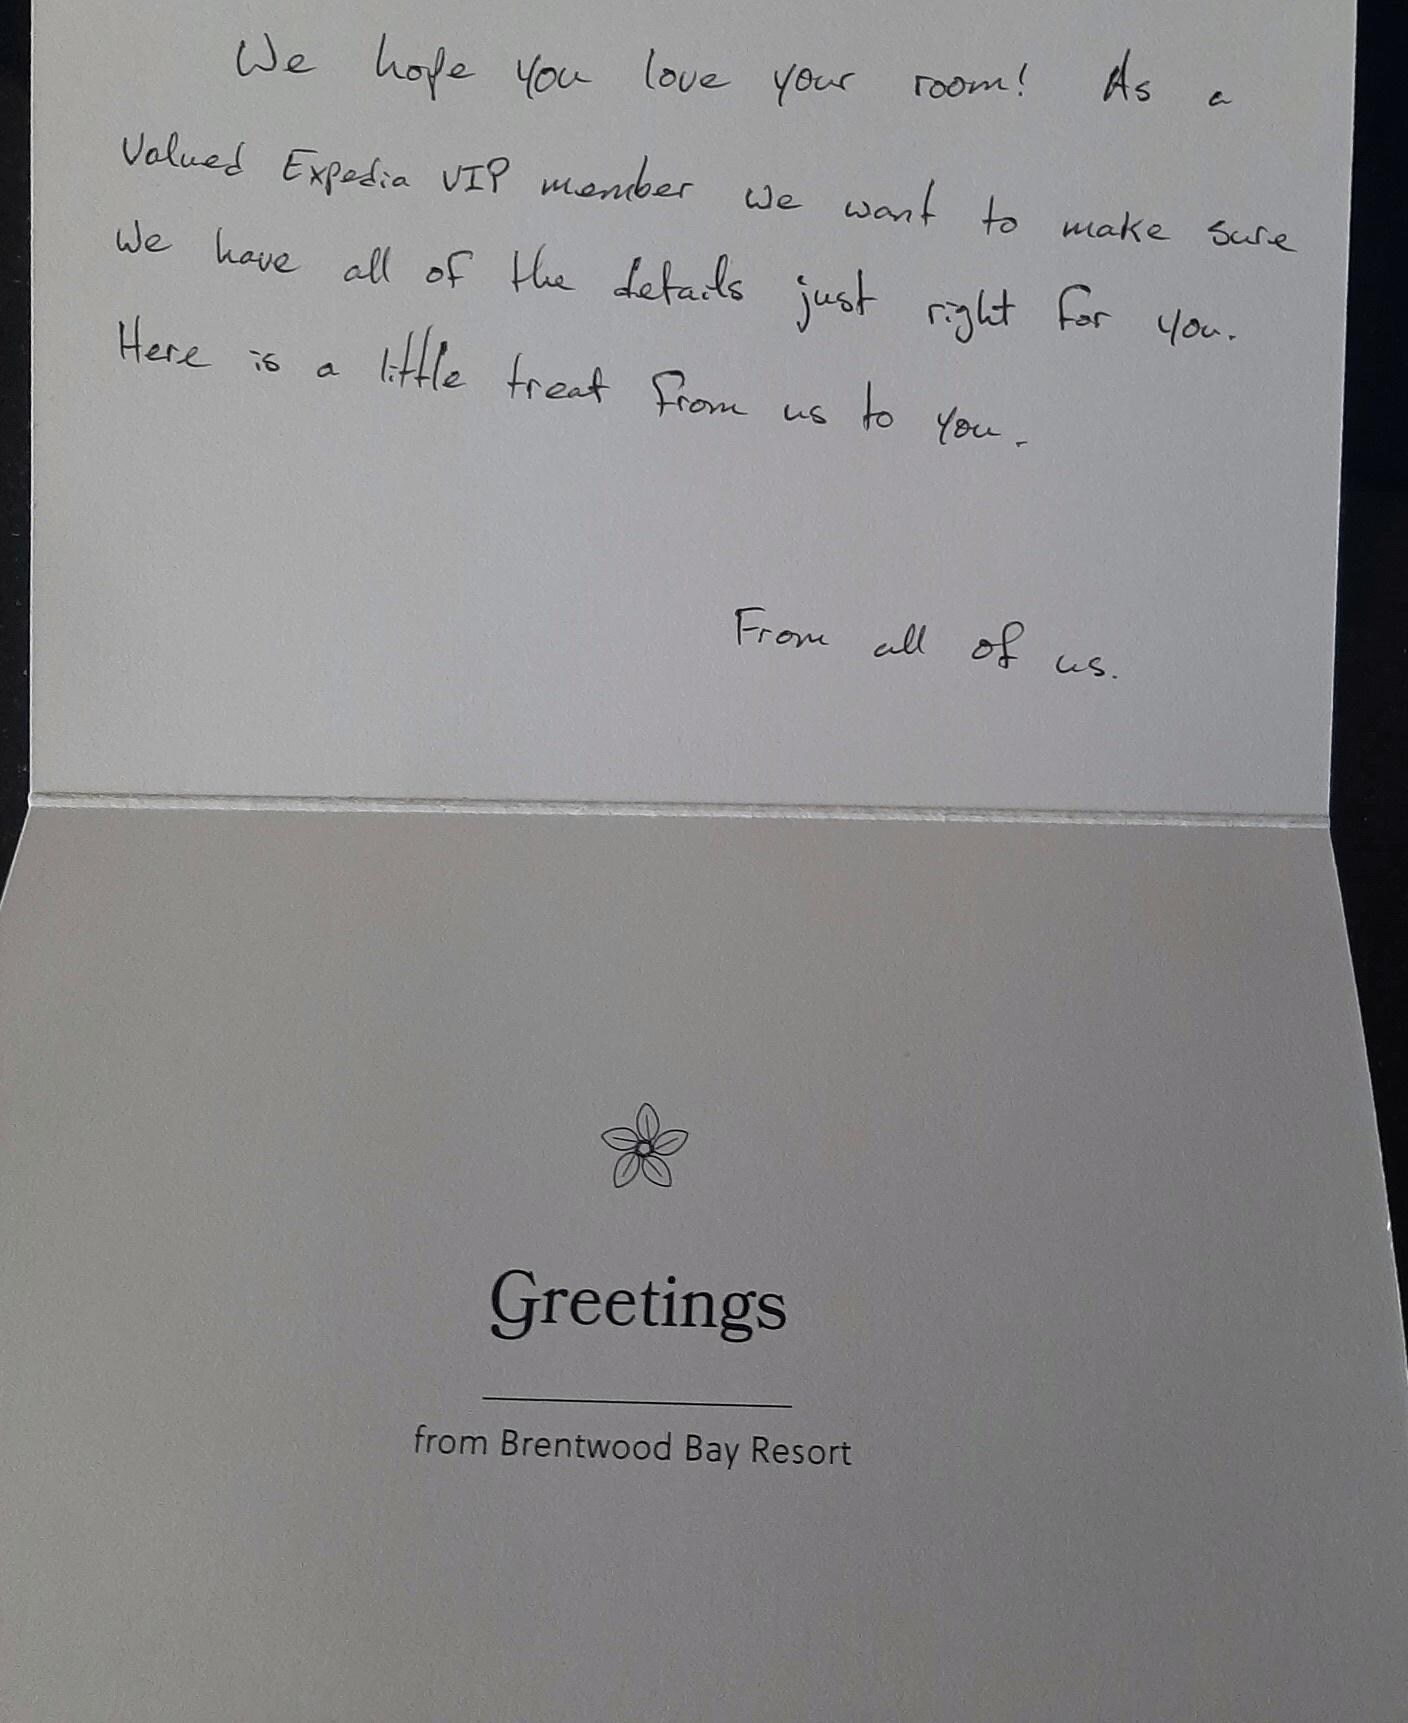 We hope you love your room! As a
Valued Expedia VIP member we want to make sure
We have all of the details just right for you.
Here is a little treat from us to you.
From all of us.
Greetings
from Brentwood Bay Resort